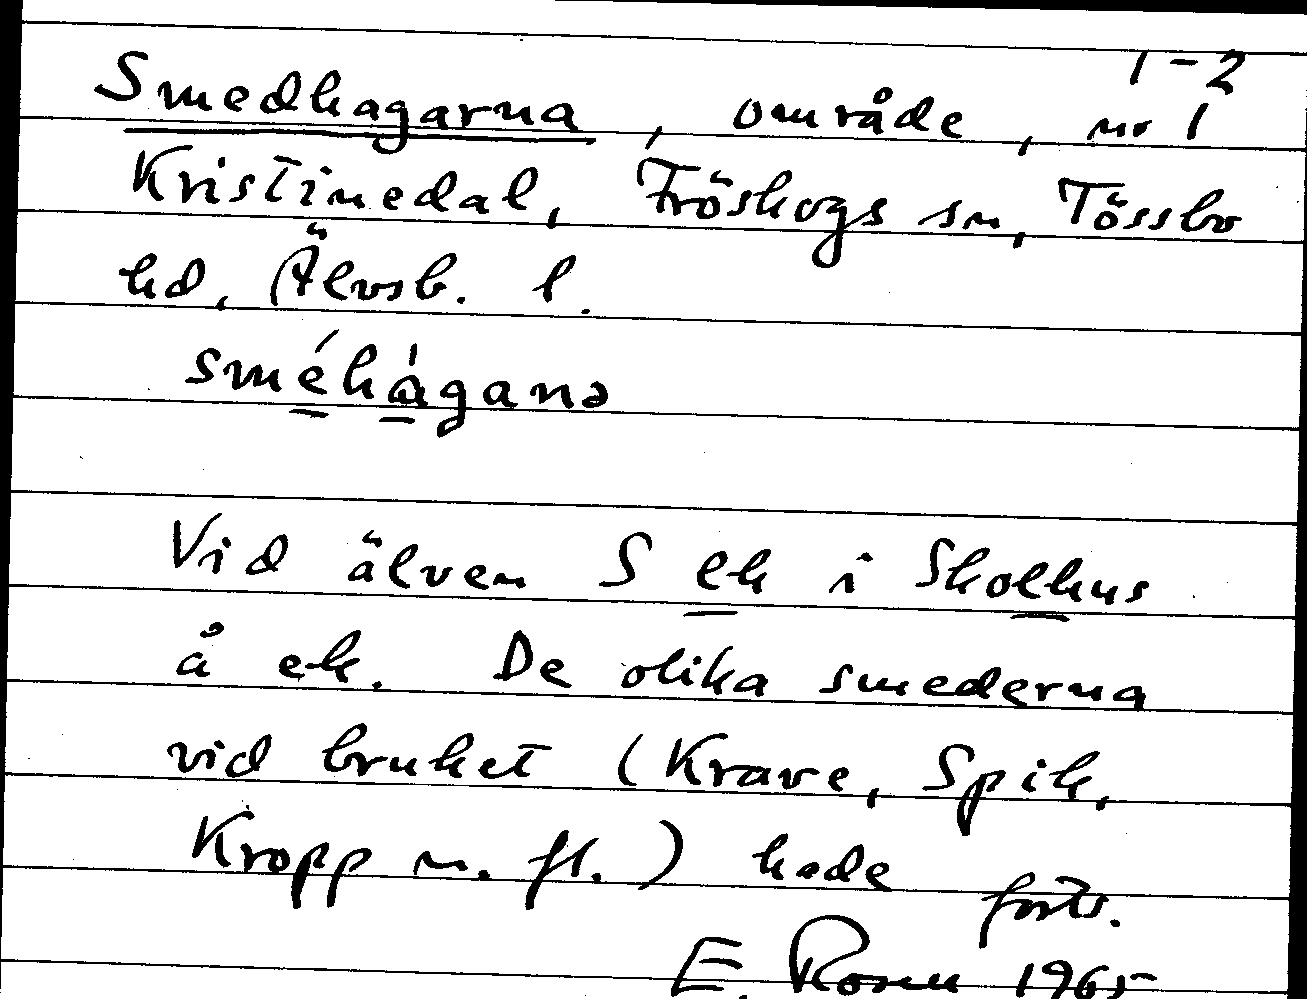 1-2
Smedhagarna, område, nr 1
Kristinedal, Fröskogs sn, Tössbo
hd, Älvsb. l.
sméhàganə
Vid älven S ek i Skolhus
å ek. De olika smederna
vid bruket (Krave, Spik,
Kropp m. fl.) hade forts.
E. Rosen 1965